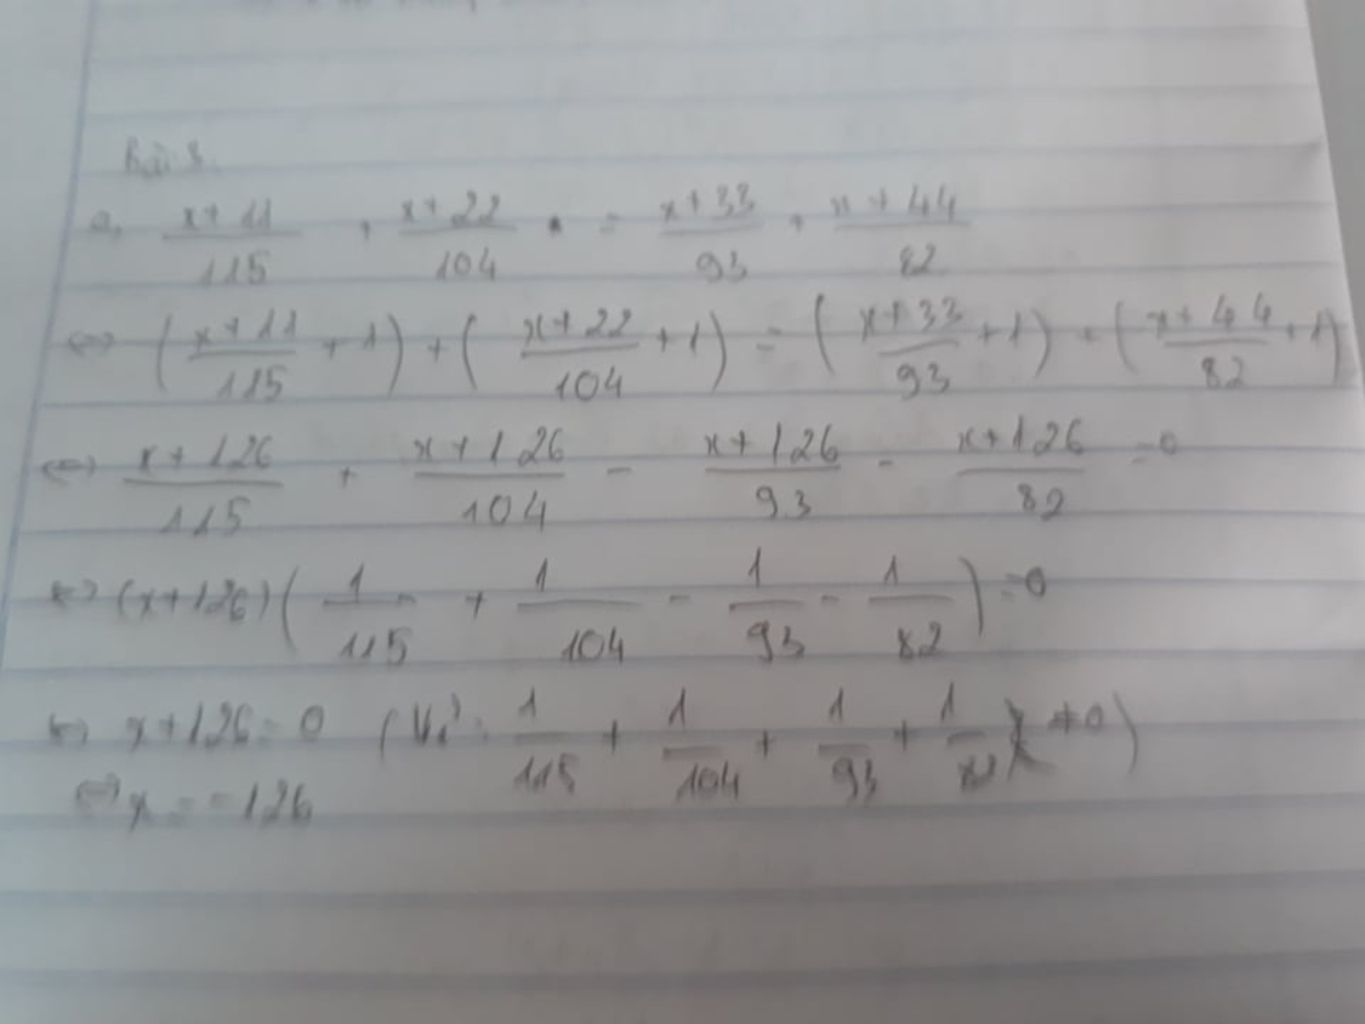 Bài 3.
a, x+11/115 + x+22/104 = x+33/93 + x+44/82
⇔ (x+11/115 + 1) + (x+22/104 + 1) = (x+33/93 + 1) + (x+44/82 + 1)
⇔ x+126/115 + x+126/104 - x+126/93 - x+126/82 = 0
⇔ (x+126)(1/115 + 1/104 - 1/93 - 1/82) = 0
⇔ x+126 = 0 (Vì: 1/115 + 1/104 + 1/93 + 1/82 ≠ 0)
⇔ x = -126